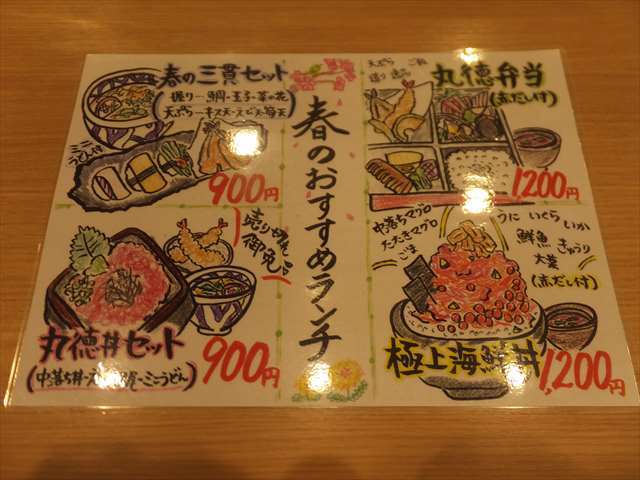 春のおすすめランチ
春の三貫セット
(握り…鯛・玉子・菜の花
天ぷら…キス天・エビ天・
ミニうどん付
900円
丸徳弁当
(赤だし付)
天ぷら
1200円
売り切れ
御免
丸徳丼セット
(中落ち丼・
ミニうどん)
900円
中落ちマグロ
たたきマグロ
ごま
うに いくら いか
鮮魚 きゅうり
大葉
(赤だし付)
極上海鮮丼
1,200円